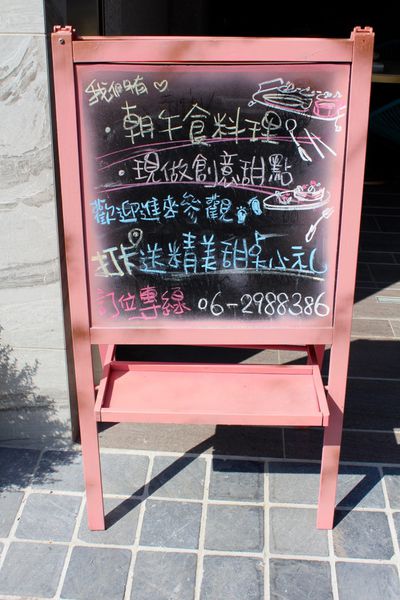 我們有♡
·朝午食料理
·現做創意甜點
歡迎進來參觀
打卡送精美甜點心礼
訂位專線 06-2988386